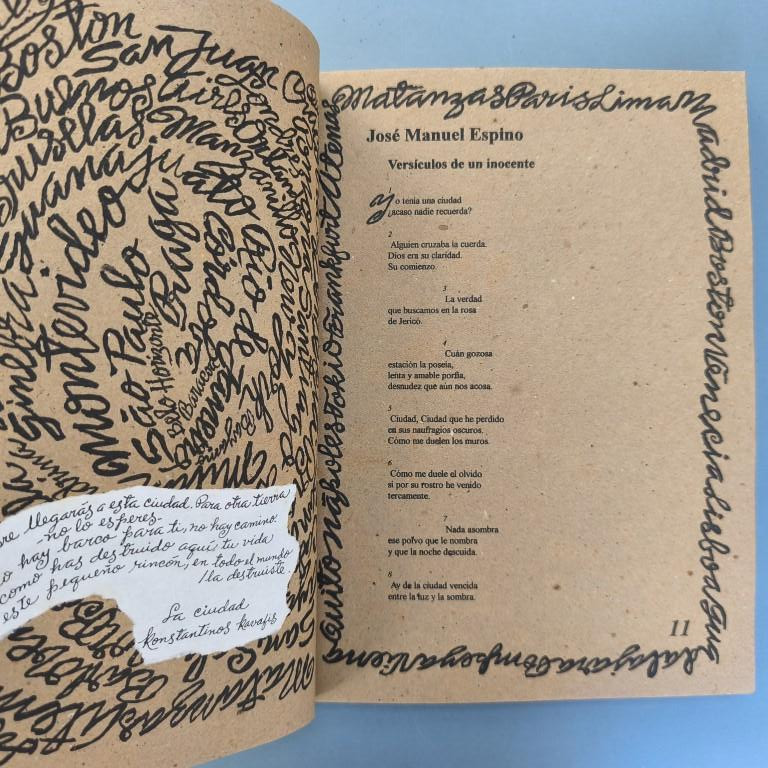 Boston
San Juan
Buenos Aires
Bruselas
Manza
Guanajuato
Montevideo
São Paulo
Belo Horizonte
Braga
Córdoba
Río de Janeiro
Ginebra
Baracoa
llegarás a esta ciudad. Para otra tierra
-no lo esperes-
hay barco para ti, no hay camino.
como has destruido aquí tu vida
este pequeño rincón, en todo el mundo
/la destruiste.
La ciudad
Konstantinos Kavafis
Matanzas
Matanzas París Lima
Madrid Boston Venecia Lisboa Gua
dalajara Pompeya Viena
Quito Nápoles Tokio Frankfurt Atenas
José Manuel Espino
Versículos de un inocente
Yo tenía una ciudad
¿acaso nadie recuerda?
2
Alguien cruzaba la cuerda.
Dios era su claridad.
Su comienzo.
3
La verdad
que buscamos en la rosa
de Jericó.
4
Cuán gozosa
estación la poseía,
lenta y amable porfía,
desnudez que aún nos acosa.
5
Ciudad, Ciudad que he perdido
en sus naufragios oscuros.
Cómo me duelen los muros.
6
Cómo me duele el olvido
si por su rostro he venido
tercamente.
7
Nada asombra
ese polvo que le nombra
y que la noche descuida.
8
Ay de la ciudad vencida
entre la luz y la sombra.
11